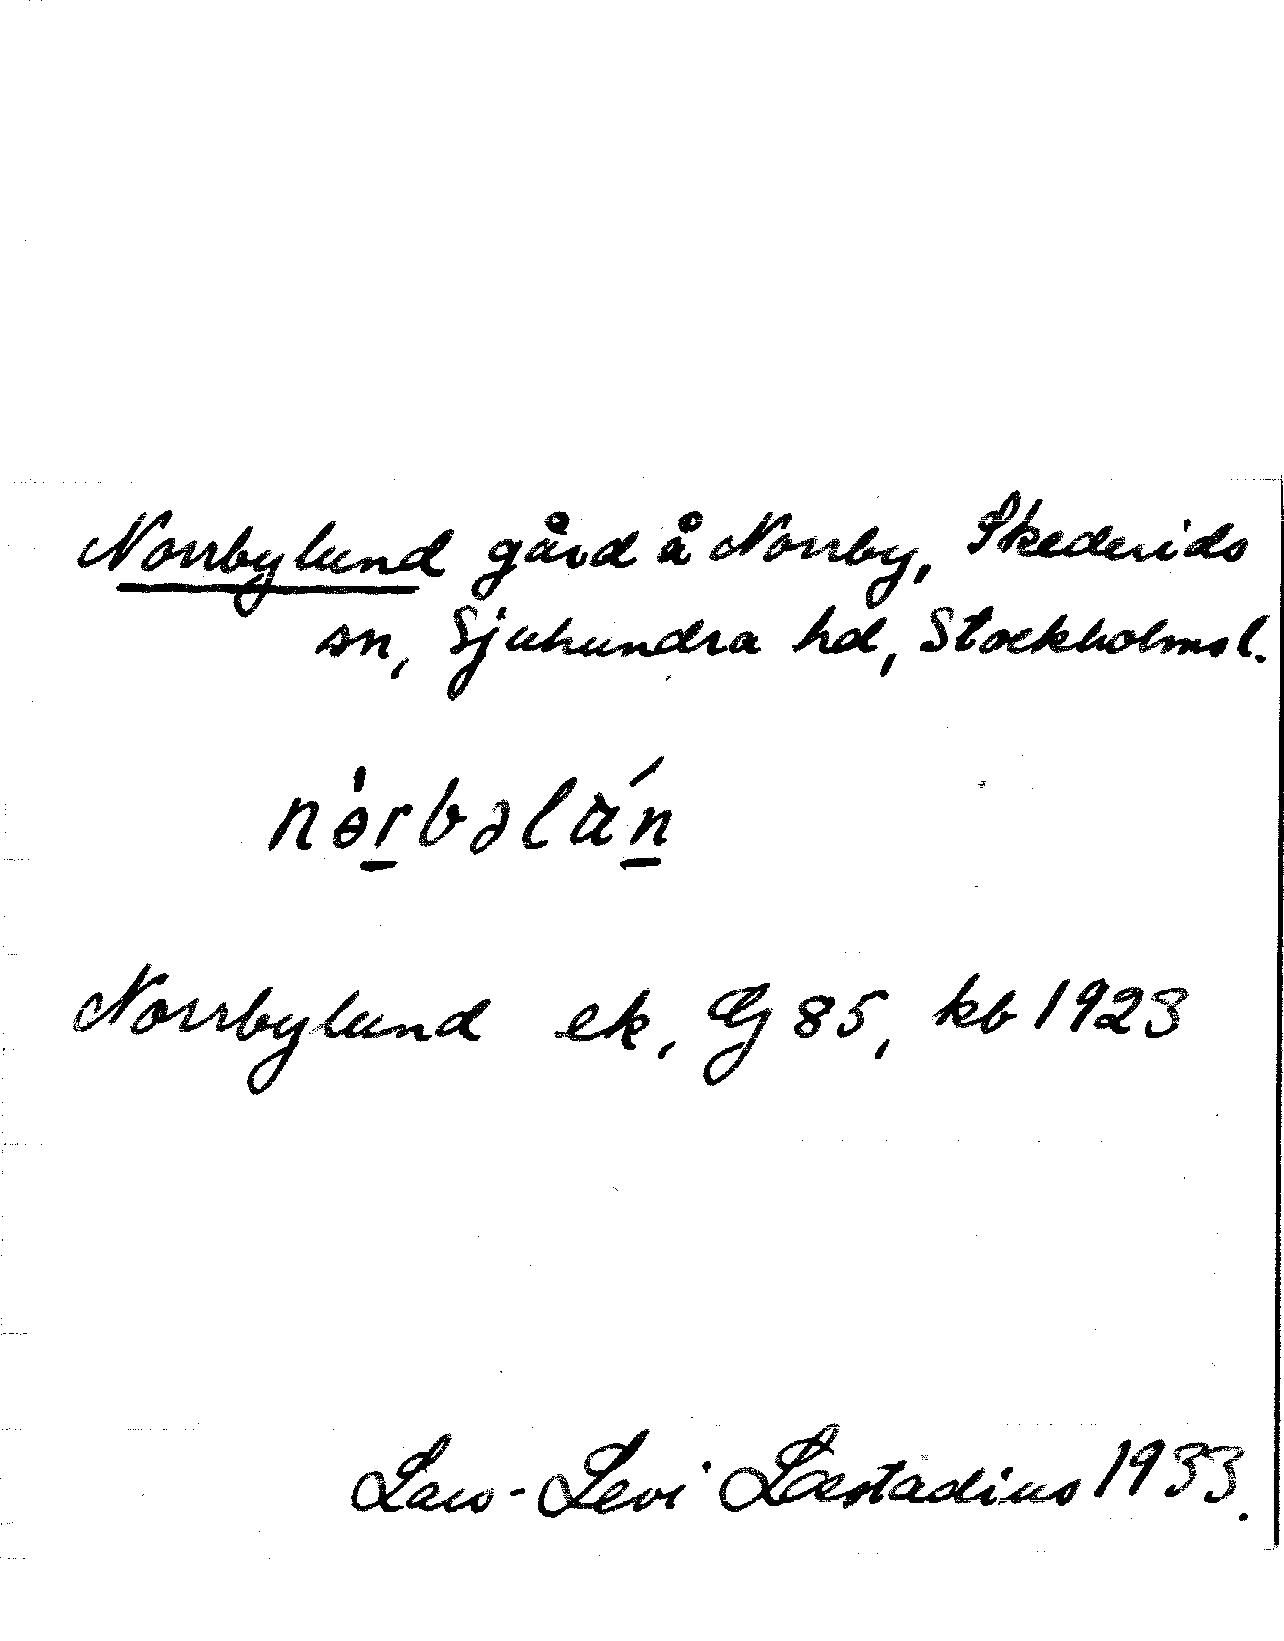 Norrbylund gård å Norrby, Skederids
sn, Sjuhundra hd, Stockholms l.
nọ̀rbəlán
Norrbylund ek, GJ 85, kb 1923
Lars-Levi Læstadius 1933.